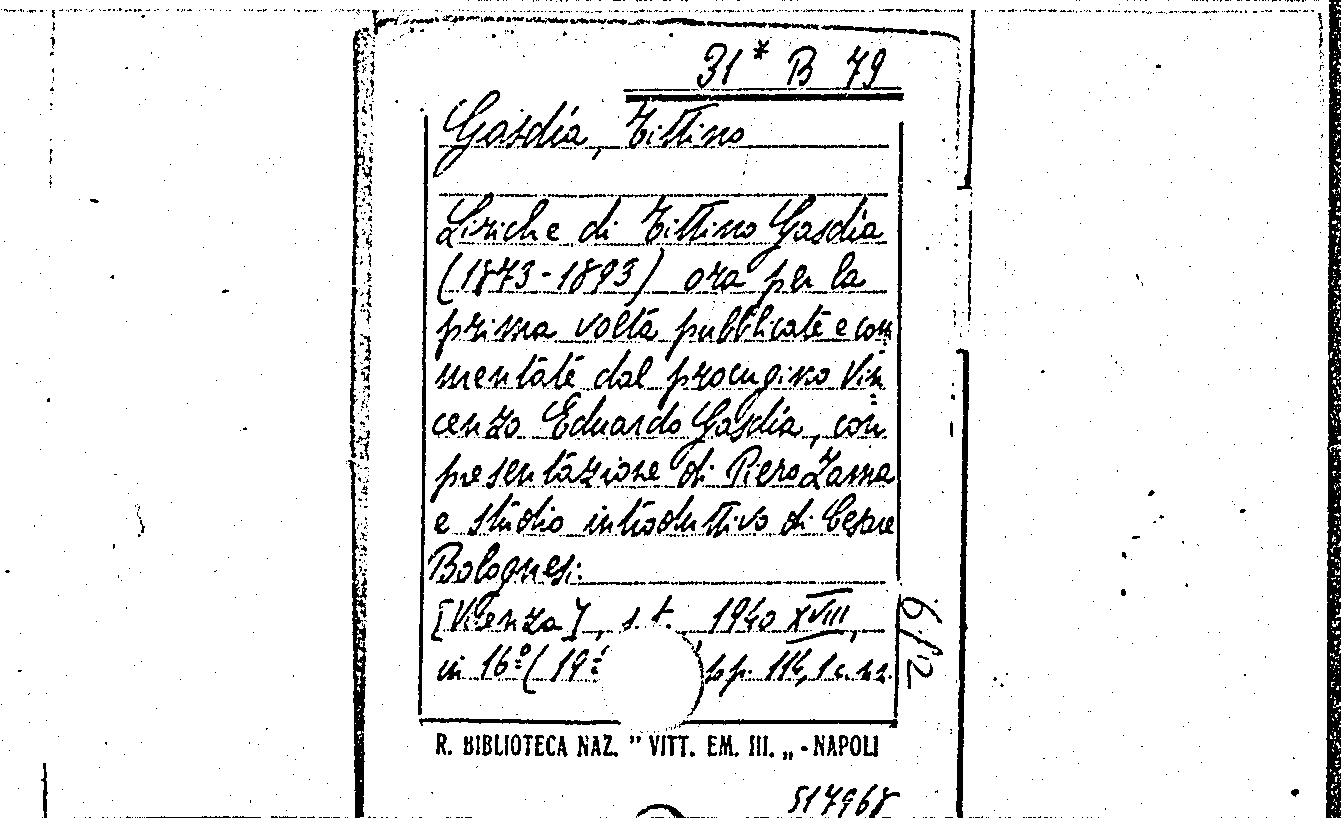 31* B 79
Gasdía, Tittino
Liriche di Tittino Gasdía
(1873-1893) ora per la
prima volta pubblicate e com
mentate dal procugino Vin
cenzo Eduardo Gasdía, con
presentazione di Piero Zama
e studio introduttivo di Cesare
Bolognesi.
[Vicenza], s.t. 1940 XVIII,
in 16º (19 pp. 114, 1 c. nn.
R. BIBLIOTECA NAZ. " VITT. EM. III. „ - NAPOLI
517968